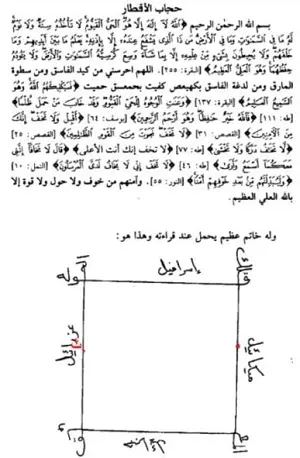 حجاب الأقطار
بسم الله الرحمن الرحيم ﴿اللَّهُ لَا إِلَهَ إِلَّا هُوَ الْحَيُّ الْقَيُّومُ لَا تَأْخُذُهُ سِنَةٌ وَلَا نَوْمٌ
لَهُ مَا فِي السَّمَاوَاتِ وَمَا فِي الْأَرْضِ مَن ذَا الَّذِي يَشْفَعُ عِندَهُ إِلَّا بِإِذْنِهِ يَعْلَمُ مَا بَيْنَ أَيْدِيهِمْ وَمَا
خَلْفَهُمْ وَلَا يُحِيطُونَ بِشَيْءٍ مِّنْ عِلْمِهِ إِلَّا بِمَا شَاءَ وَسِعَ كُرْسِيُّهُ السَّمَاوَاتِ وَالْأَرْضَ وَلَا يَئُودُهُ
حِفْظُهُمَا وَهُوَ الْعَلِيُّ الْعَظِيمُ﴾ [البقرة: ٢٥٥]. اللهم احرسني من كيد الفاسق ومن سطوة
المارق ومن لدغة الفاسق بكهيعص كفيت بحمعسق حميت ﴿فَسَيَكْفِيكَهُمُ اللَّهُ وَهُوَ
السَّمِيعُ الْعَلِيمُ﴾ [البقرة: ١٣٧] ﴿وَعَنَتِ الْوُجُوهُ لِلْحَيِّ الْقَيُّومِ وَقَدْ خَابَ مَنْ حَمَلَ ظُلْمًا﴾
[طه: ١١١] ﴿فَاللَّهُ خَيْرٌ حَافِظًا وَهُوَ أَرْحَمُ الرَّاحِمِينَ﴾ [يوسف: ٦٤] ﴿أَقْبِلْ وَلَا تَخَفْ إِنَّكَ
مِنَ الْآمِنِينَ﴾ [القصص: ٣١] ﴿لَا تَخَفْ نَجَوْتَ مِنَ الْقَوْمِ الظَّالِمِينَ﴾ [القصص: ٢٥]
﴿لَا تَخَافُ دَرَكًا وَلَا تَخْشَى﴾ [طه: ٧٧] ﴿لا تخف إنك أنت الأعلى﴾ ﴿قَالَ لَا تَخَافَا إِنَّنِي
مَعَكُمَا أَسْمَعُ وَأَرَى﴾ [طه: ٤٦] ﴿لَا تَخَفْ إِنِّي لَا يَخَافُ لَدَيَّ الْمُرْسَلُونَ﴾ [النمل: ١٠]
﴿وَلَيُبَدِّلَنَّهُم مِّن بَعْدِ خَوْفِهِمْ أَمْنًا﴾ [النور: ٥٥]. وآمنهم من خوف ولا حول ولا قوة إلا
بالله العلي العظيم.
وله خاتم عظيم يحمل عند قراءته وهذا هو:
إسرافيل
عزرائيل
ميكائيل